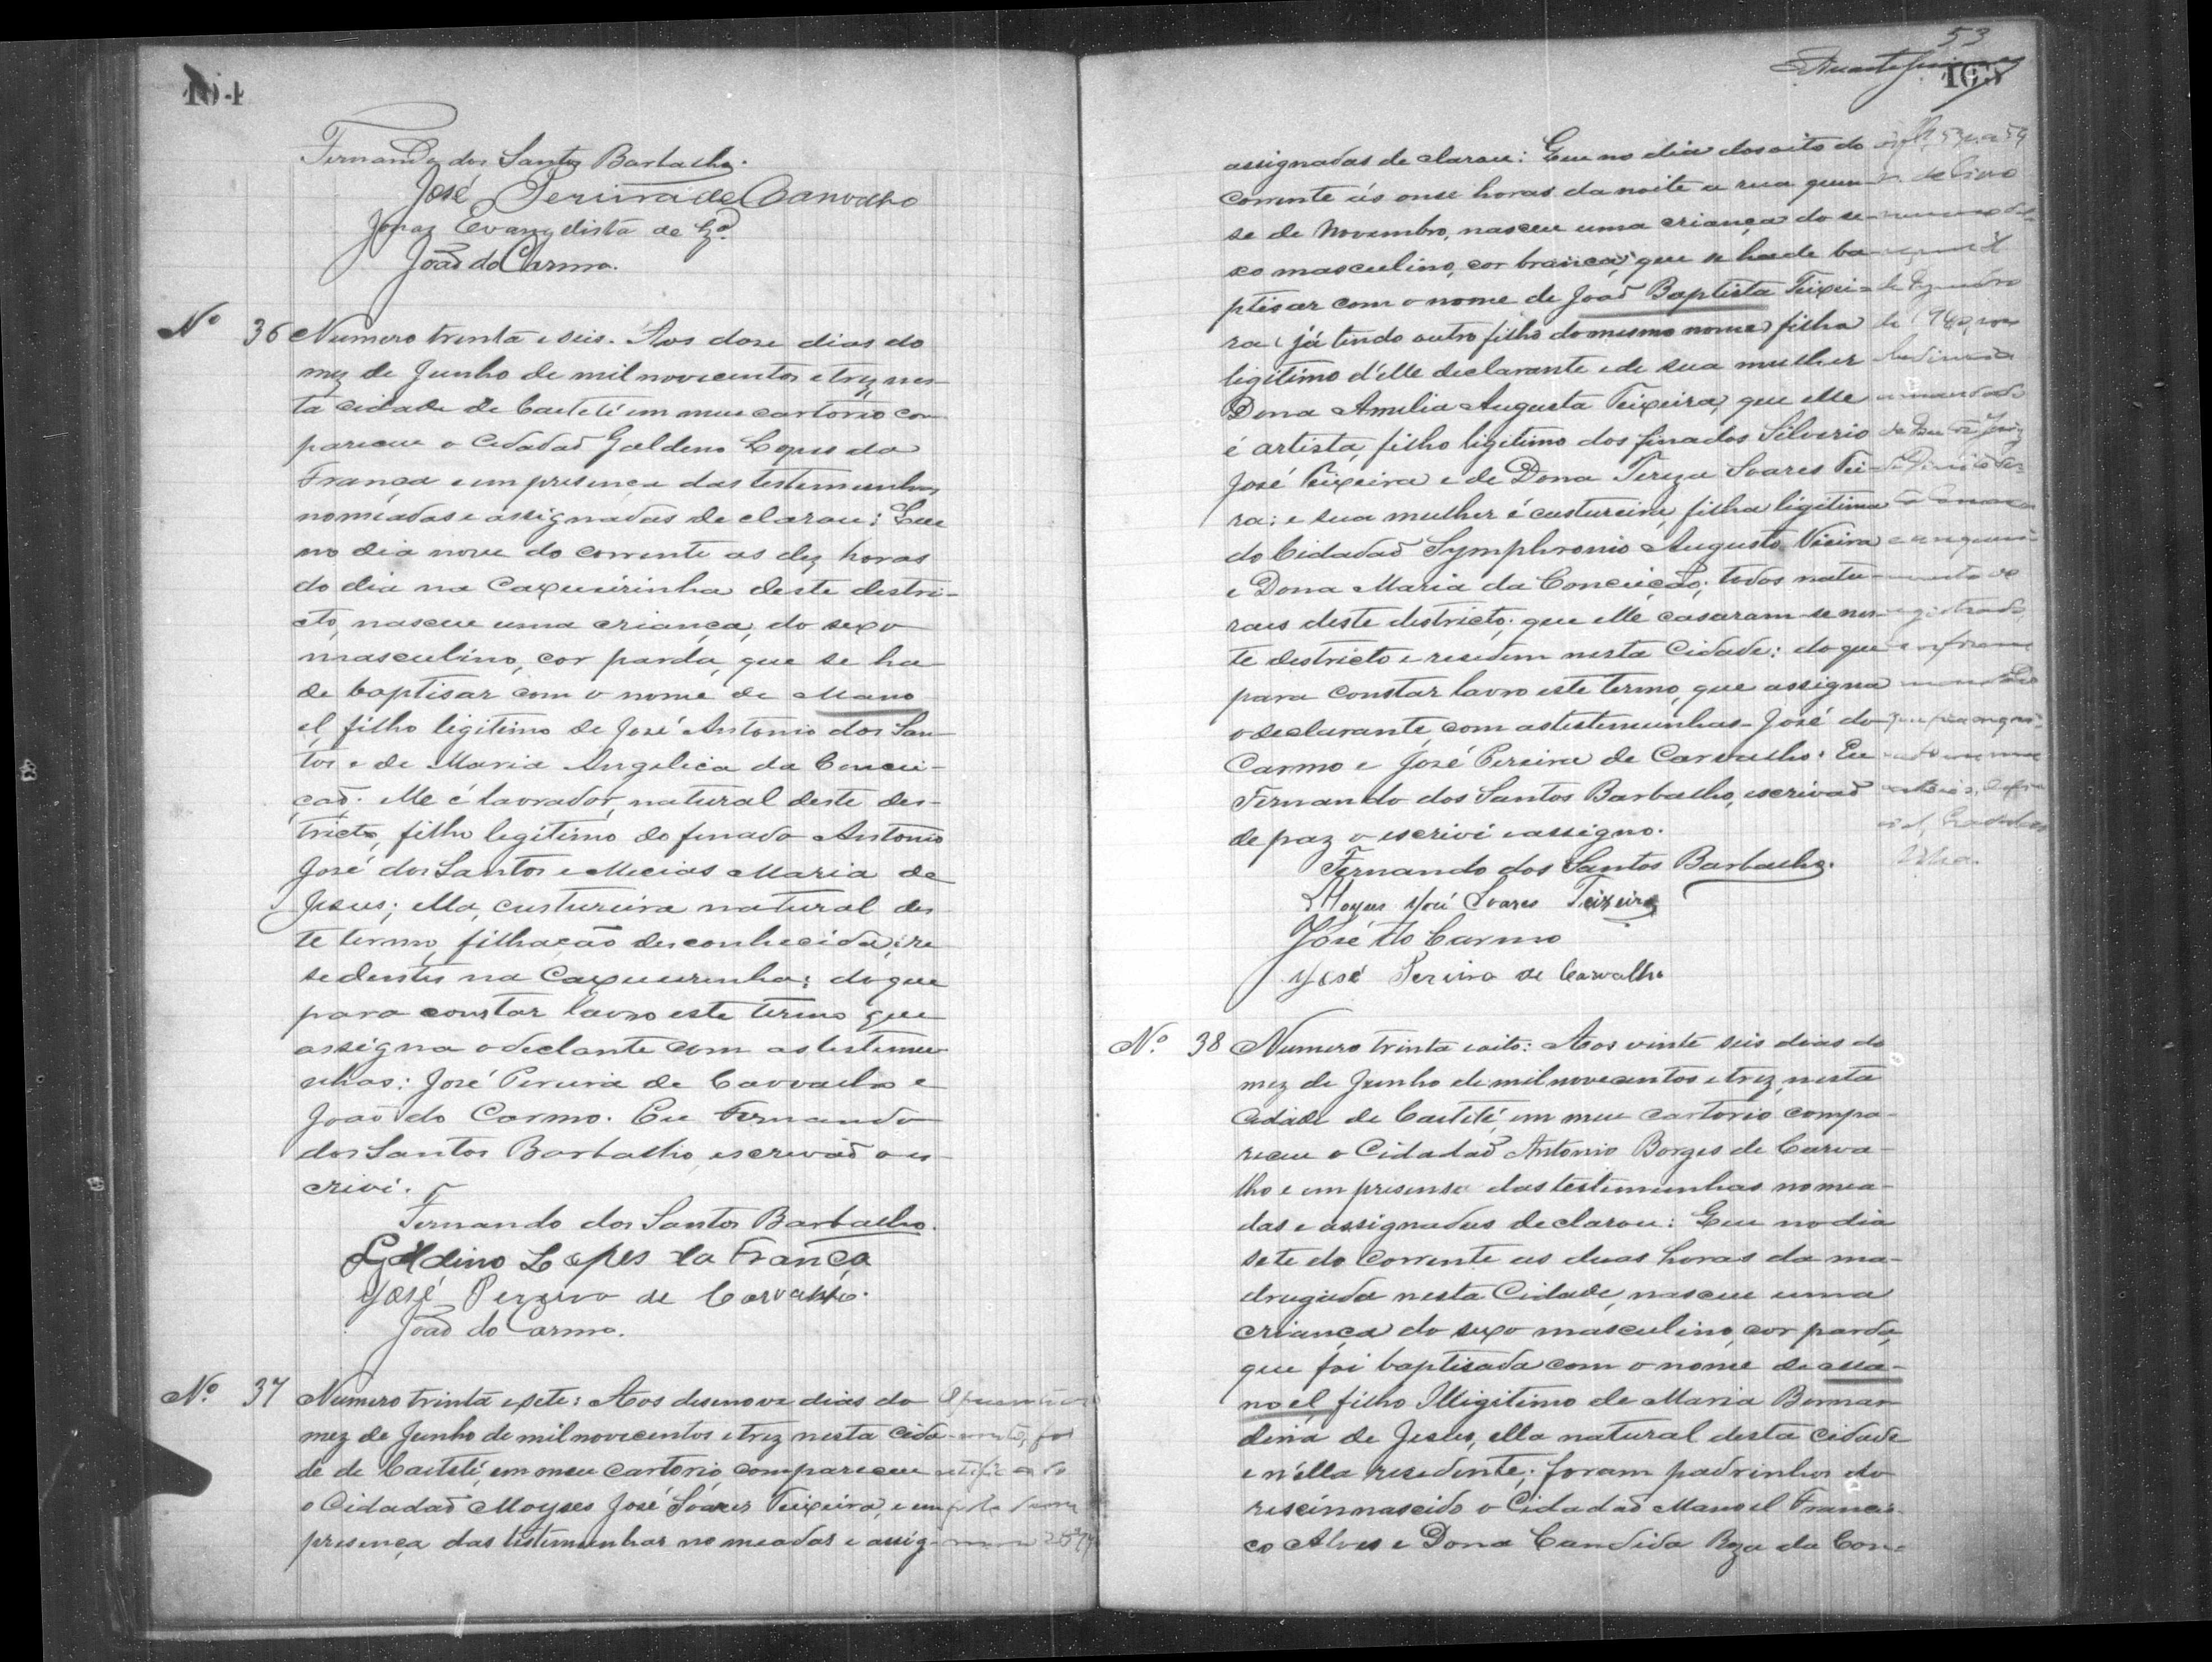 164
Fernando dos Santos Barbalho.
José Pereira de Carvalho
Jonas Evangelista de
João do Carmo.
Nº 36 Numero trinta e seis. Aos dose dias do
mez de Junho de mil novecentos e trez nes-
ta cidade de Caetité em meu cartorio com-
pareceu o Cidadão Galdino Lopes da
França e em presença das testemunhas
nomiadas e assignadas declarou: Que
no dia nove do corrente as dez horas
do dia na Caxueirinha deste destri-
cto, nasceu uma criança, do sexo
masculino, cor parda, que se ha
de baptisar com o nome de Mano
el, filho ligitimo de José Antonio dos San-
tos e de Maria Angelica da Concei-
ção. elle é lavrador, natural deste des-
tricto, filho legitimo do finado Antonio
José dos Santos e Mecias Maria de
Jesus; ella, custureira natural des-
te termo, filhação desconhecida; re
sedentes na Caxueirinha: do que
para constar lavro este termo que
assigna o declante com as testemu-
nhas: José Pereira de Carvalho e
João do Carmo. Eu Fernando
dos Santos Barbalho, escrivão o es-
crevi.
Fernando dos Santos Barbalho.
Galdino Lopes da França
José Pereira de Carvalho.
João do Carmo.
Nº 37 Numero trinta e sete: Aos desenove dias do
mez de Junho de mil novecentos e trez nesta cida-
de de Caetité, em meu cartorio compareceu
o Cidadão Moyses José Soares Teixeira, e em
presença das testemunhas nomeadas e assig-
53
165
assignadas declarou: Que no dia desoito do
corrente ás onse horas da noite a rua quin-
se de Novembro, nasceu uma criança do se-
xo masculino, cor branca, que se hade ba-
ptisar com o nome de João Baptista Teixei-
ra (já tendo outro filho do mesmo nome) filho
legitimo d'elle declarante e de sua mulher
Dona Amelia Augusta Teixeira, que elle
é artista, filho ligitimo dos finados Silverio
José Teixeira e de Dona Tereza Soares Tei-
ra: e sua mulher é custureira, filha ligitima
do Cidadão Symphronio Augusto Vieira
e Dona Maria da Conceição; todos natu-
raes deste destricto; que elle casaram-se nes-
te destricto e residem nesta Cidade: do que
para constar lavro este termo, que assigna
o declarante, com as testemunhas José do
Carmo e José Pereira de Carvalho. Eu
Fernando dos Santos Barbalho, escrivão
de paz o escrivi e assigno.
Fernando dos Santos Barbalho.
Moyses José Soares Teixeira
José do Carmo
José Pereira de Carvalho
Nº 38 Numero trinta e oito: Aos vinte seis dias do
mez de Junho de mil novecentos e trez, nesta
Cidade de Caetité, em meu cartorio compa-
receu o Cidadão Antonio Borges de Carva-
lho e em presensa das testemunhas nomea-
das e assignadas declarou: Que no dia
sete do Corrente as duas horas da ma-
drugada nesta Cidade, nasceu uma
criança do sexo masculino, cor parda,
que foi baptisada com o nome de Ma-
noel, filho Illigitimo de Maria Bernar
dina de Jesus, ella natural desta cidade
e n'ella residente; foram padrinhos do
rescinnascido o Cidadão Manoel Francis-
co Alves e Dona Candida Roza da Con-